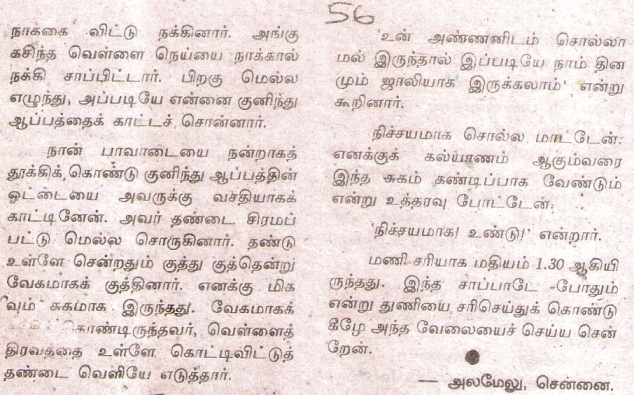 நாக்கை விட்டு நக்கினார். அங்கு
கசிந்த வெள்ளை நெய்யை நாக்கால்
நக்கி சாப்பிட்டார். பிறகு மெல்ல
எழுந்து, அப்படியே என்னை குனிந்து
ஆப்பத்தைக் காட்டச் சொன்னார்.
நான் பாவாடையை நன்றாகத்
தூக்கிக் கொண்டு குனிந்து ஆப்பத்தின்
ஓட்டையை அவருக்கு வசதியாகக்
காட்டினேன். அவர் தண்டை சிரமப்
பட்டு மெல்ல சொருகினார். தண்டு
உள்ளே சென்றதும் குத்து குத்தென்று
வேகமாகக் குத்தினார். எனக்கு மிக
வும் சுகமாக இருந்தது. வேகமாகக்
காண்டிருந்தவர், வெள்ளைத்
திரவத்தை உள்ளே கொட்டிவிட்டுத்
தண்டை வெளியே எடுத்தார்.
56
'உன் அண்ணனிடம் சொல்லா
மல் இருந்தால் இப்படியே நாம் தின
மும் ஜாலியாக இருக்கலாம்' என்று
கூறினார்.
நிச்சயமாக சொல்ல மாட்டேன்.
எனக்குக் கல்யாணம் ஆகும்வரை
இந்த சுகம் கண்டிப்பாக வேண்டும்
என்று உத்தரவு போட்டேன்.
'நிச்சயமாக! உண்டு!' என்றார்.
மணி சரியாக மதியம் 1.30 ஆகியி
ருந்தது. இந்த சாப்பாடே -போதும்
என்று துணியை சரிசெய்துக் கொண்டு
கீழே அந்த வேலையைச் செய்ய சென்
றேன்.
— அலமேலு, சென்னை.